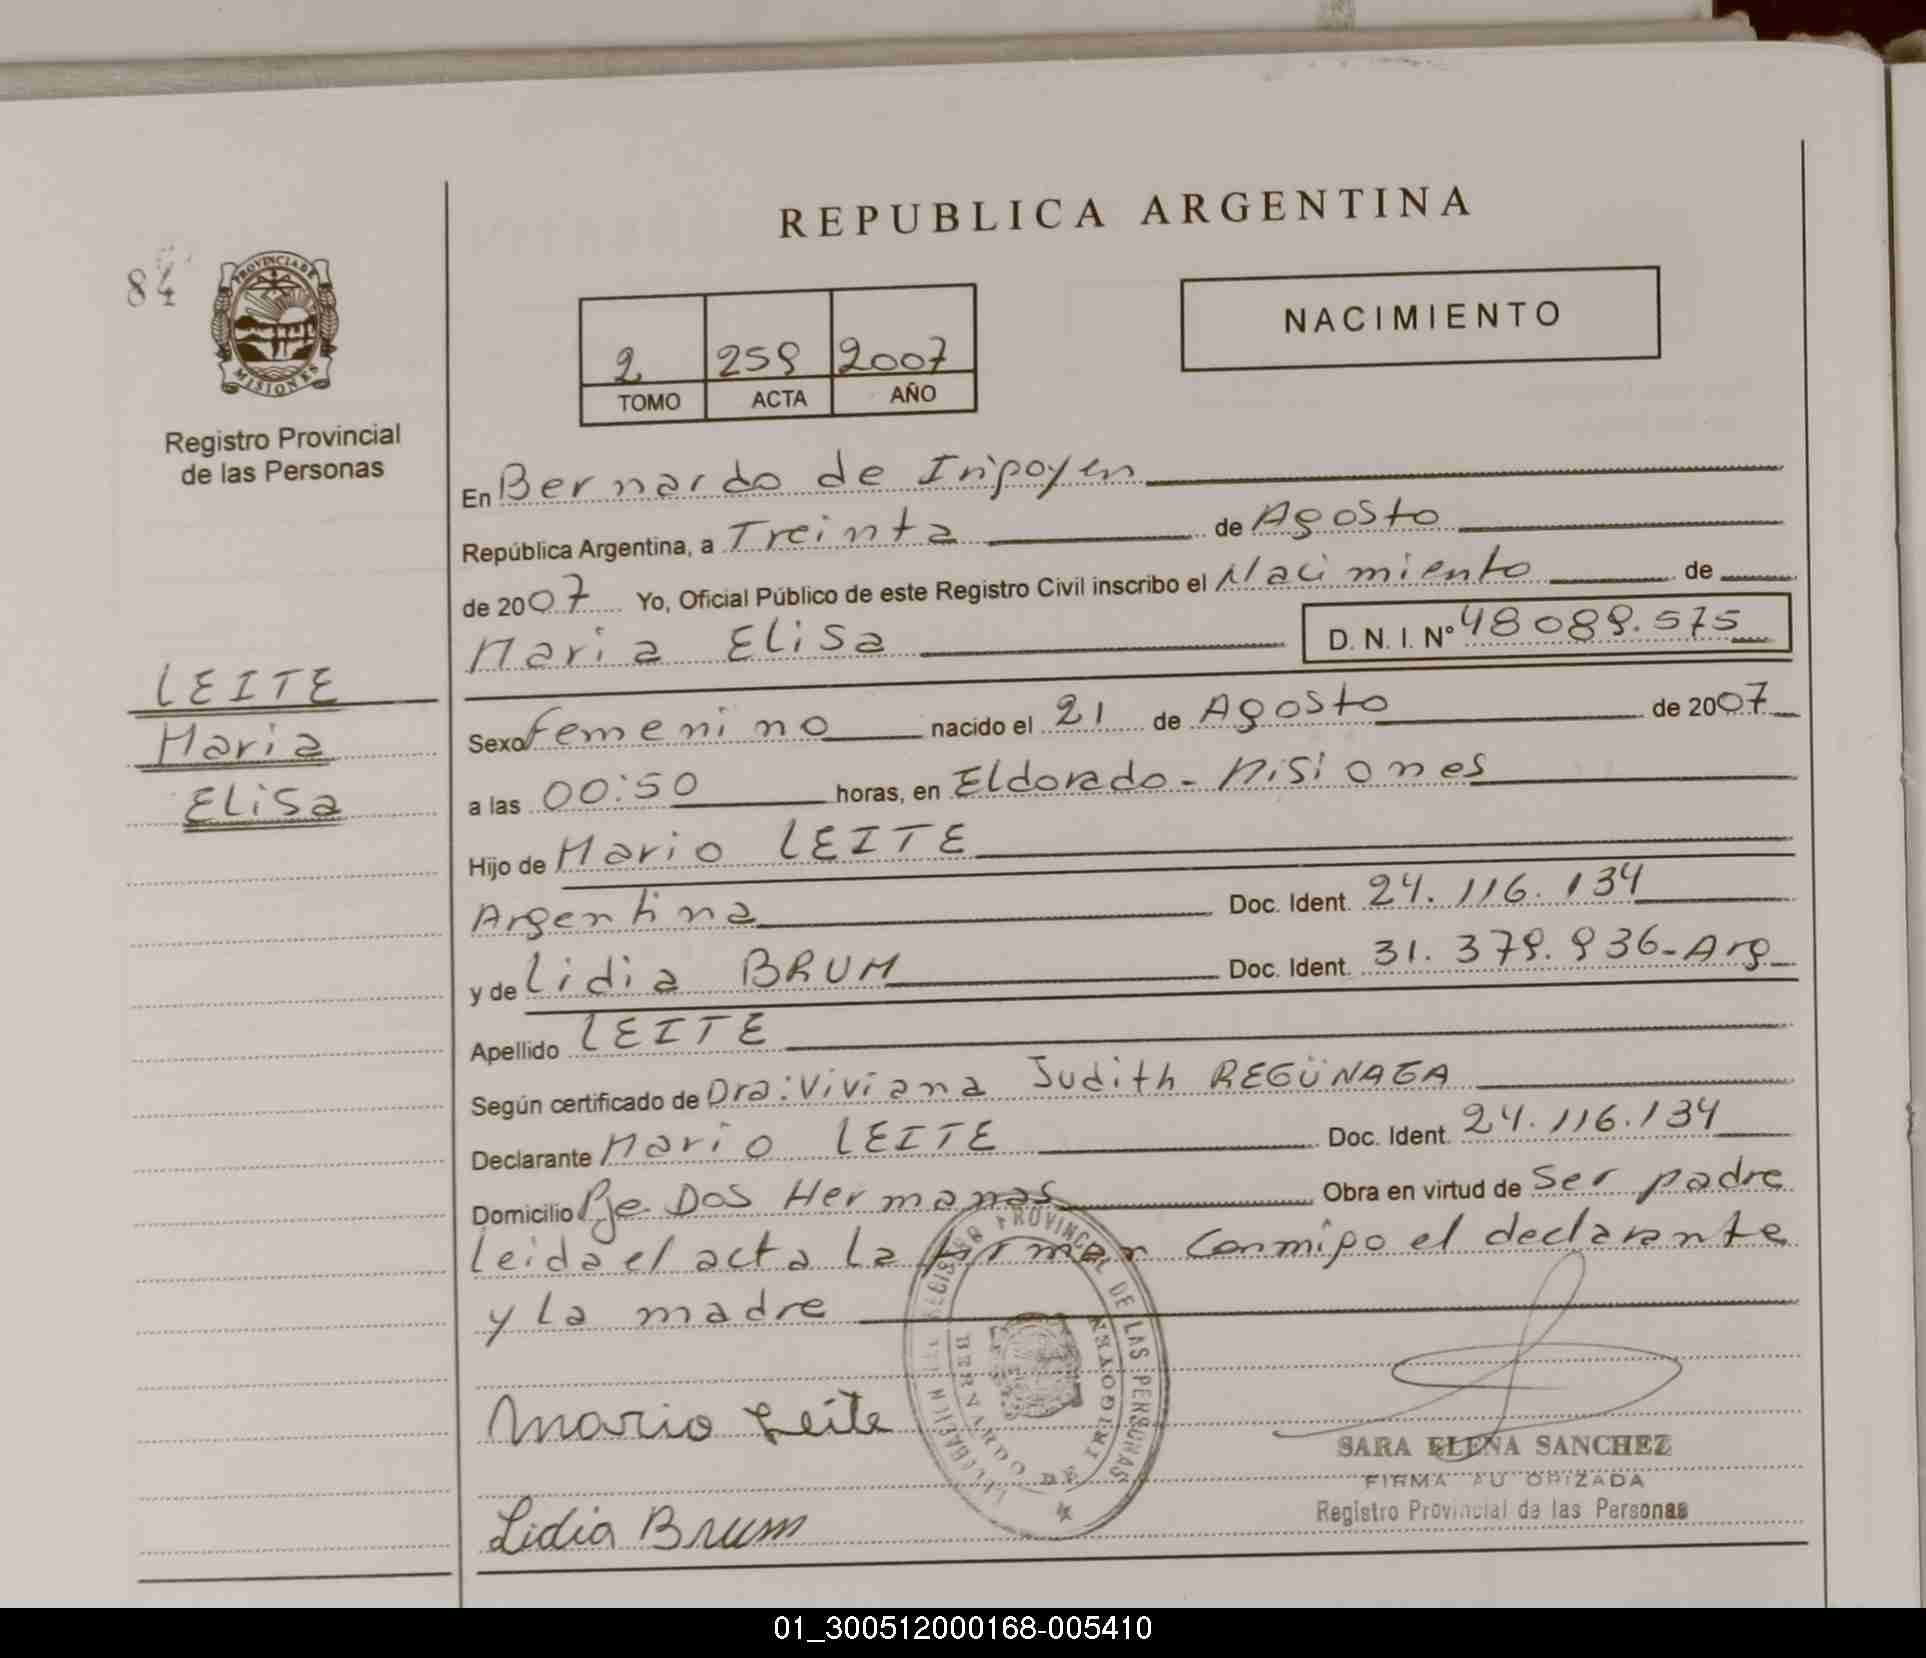 REPUBLICA ARGENTINA
84
PROVINCIA DE
MISIONES
Registro Provincial
de las Personas
NACIMIENTO
2 259 2007
TOMO ACTA AÑO
En Bernardo de Irigoyen
República Argentina, a Treinta de Agosto
de 2007 Yo, Oficial Público de este Registro Civil inscribo el Nacimiento de
Maria Elisa D. N. I. N° 48089.575
LEITE
Maria
Elisa
Sexo Femenino nacido el 21 de Agosto de 2007
a las 00:50 horas, en Eldorado - Misiones
Hijo de Mario LEITE
Argentina Doc. Ident. 24.116.134
y de Lidia BRUM Doc. Ident. 31.379.936-Arg
Apellido LEITE
Según certificado de Dra: Viviana Judith REGÜNAGA
Declarante Mario LEITE Doc. Ident. 24.116.134
Domicilio Pje Dos Hermanas Obra en virtud de ser padre
Leida el acta la firman conmigo el declarante
y la madre
Mario Leite
Lidia Brum
REGISTRO PROVINCIAL DE LAS PERSONAS
BERNARDO DE IRIGOYEN
SARA ELENA SANCHEZ
FIRMA AUTORIZADA
Registro Provincial de las Personas
01_300512000168-005410